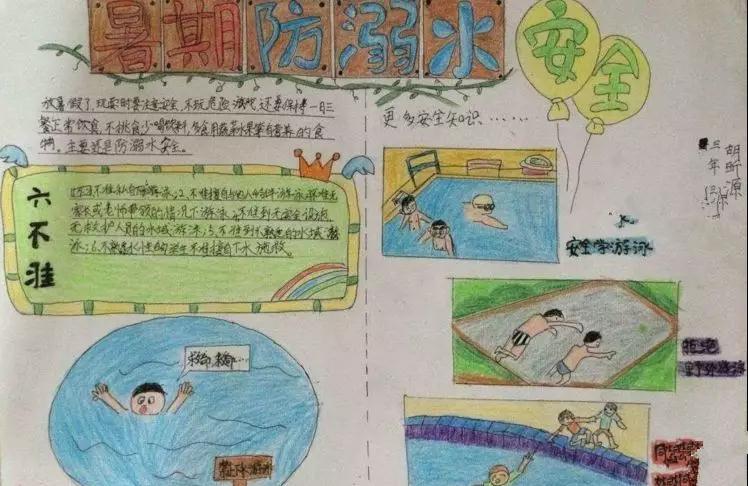 暑期防溺水
安全
放暑假了,玩耍时要注意安全,不玩危险游戏,还要保持一日三
餐正常饮食,不挑食少喝饮料,多食用蔬菜水果等有营养的食
物。主要还是防溺水安全。
更多安全知识……
三年
胡昕源
六不准
1.不准私自下水游泳;2.不准擅自与他人结伴游泳;3.不准无
家长或老师带领的情况下游泳;4.不准到无安全设施、
无救护人员的水域游泳;5.不准到不熟悉的水域游
泳;6.不熟悉水性的学生不准擅自下水施救。
安全学游泳
拒绝
野外游泳
求命,救命…
禁止游泳